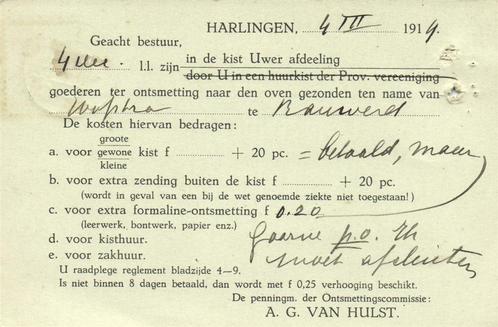 HARLINGEN, 4 III 1919.
Geacht bestuur,
4 l.l. zijn in de kist Uwer afdeeling
door U in een huurkist der Prov. vereeniging
goederen ter ontsmetting naar den oven gezonden ten name van
te Rauwerd
De kosten hiervan bedragen:
groote
a. voor gewone kist f + 20 pc. = betaald, maar
kleine
b. voor extra zending buiten de kist f + 20 pc. =
(wordt in geval van een bij de wet genoemde ziekte niet toegestaan!)
c. voor extra formaline-ontsmetting f 0.20
(leerwerk, bontwerk, papier enz.)
d. voor kisthuur. gaarne p.o. Ik
e. voor zakhuur. moet afsluiten
U raadplege reglement bladzijde 4-9.
Is niet binnen 8 dagen betaald, dan wordt met f 0,25 verhooging beschikt.
De penningm. der Ontsmettingscommissie:
A. G. VAN HULST.